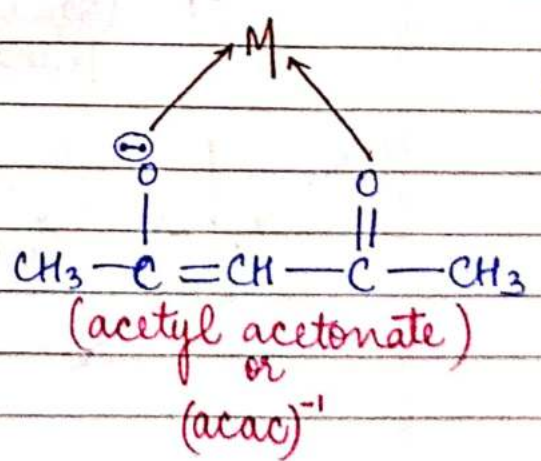 M
⊖
O O
| ||
CH₃—C=CH—C—CH₃
(acetyl acetonate)
or
(acac)⁻¹